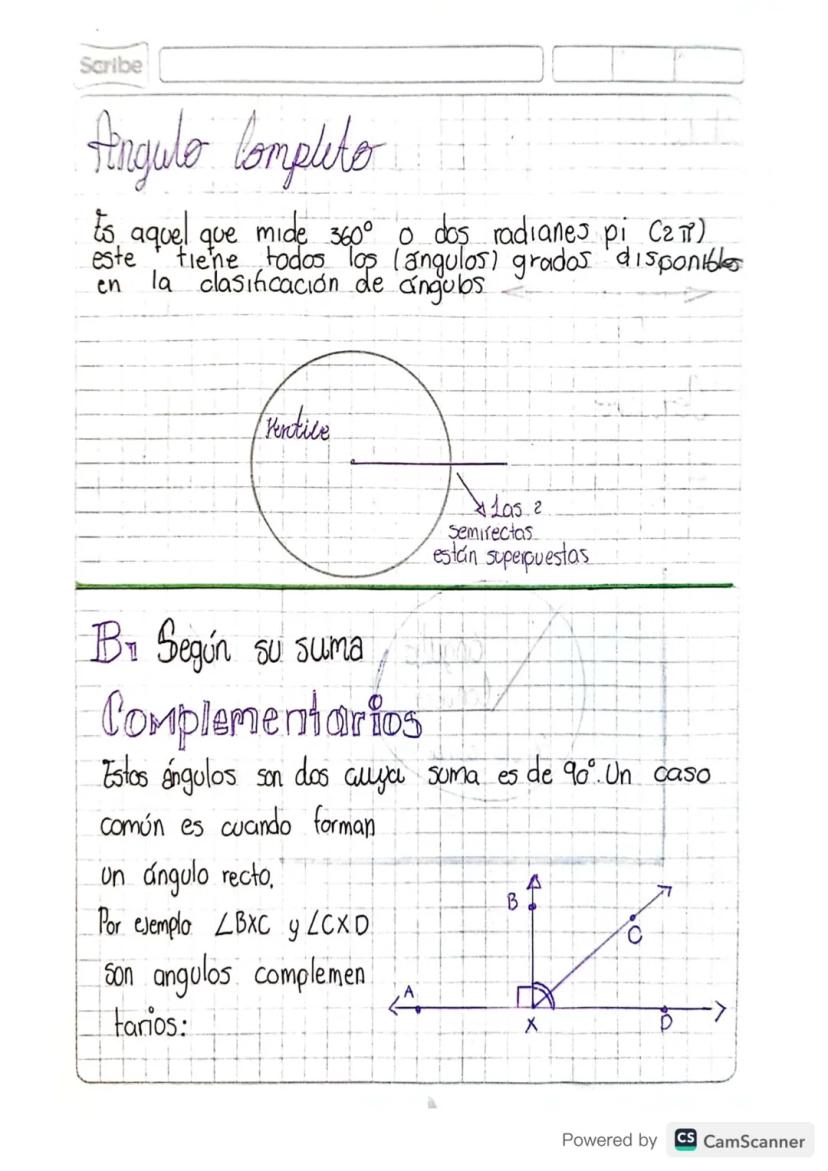 Scribe
Ángulo Completo
Es aquel que mide 360° o dos radianes pi (2π)
este tiene todos los (ángulos) grados disponibles
en la clasificación de ángulos
Vertice
Las 2
semirectas
están superpuestas
B. Según su suma
Complementarios
Estos ángulos son dos cuya suma es de 90°. Un caso
común es cuando forman
un ángulo recto.
Por ejemplo ∠BXC y ∠CXD
son angulos complemen
tarios:
B
C
A
X
D
Powered by CS CamScanner